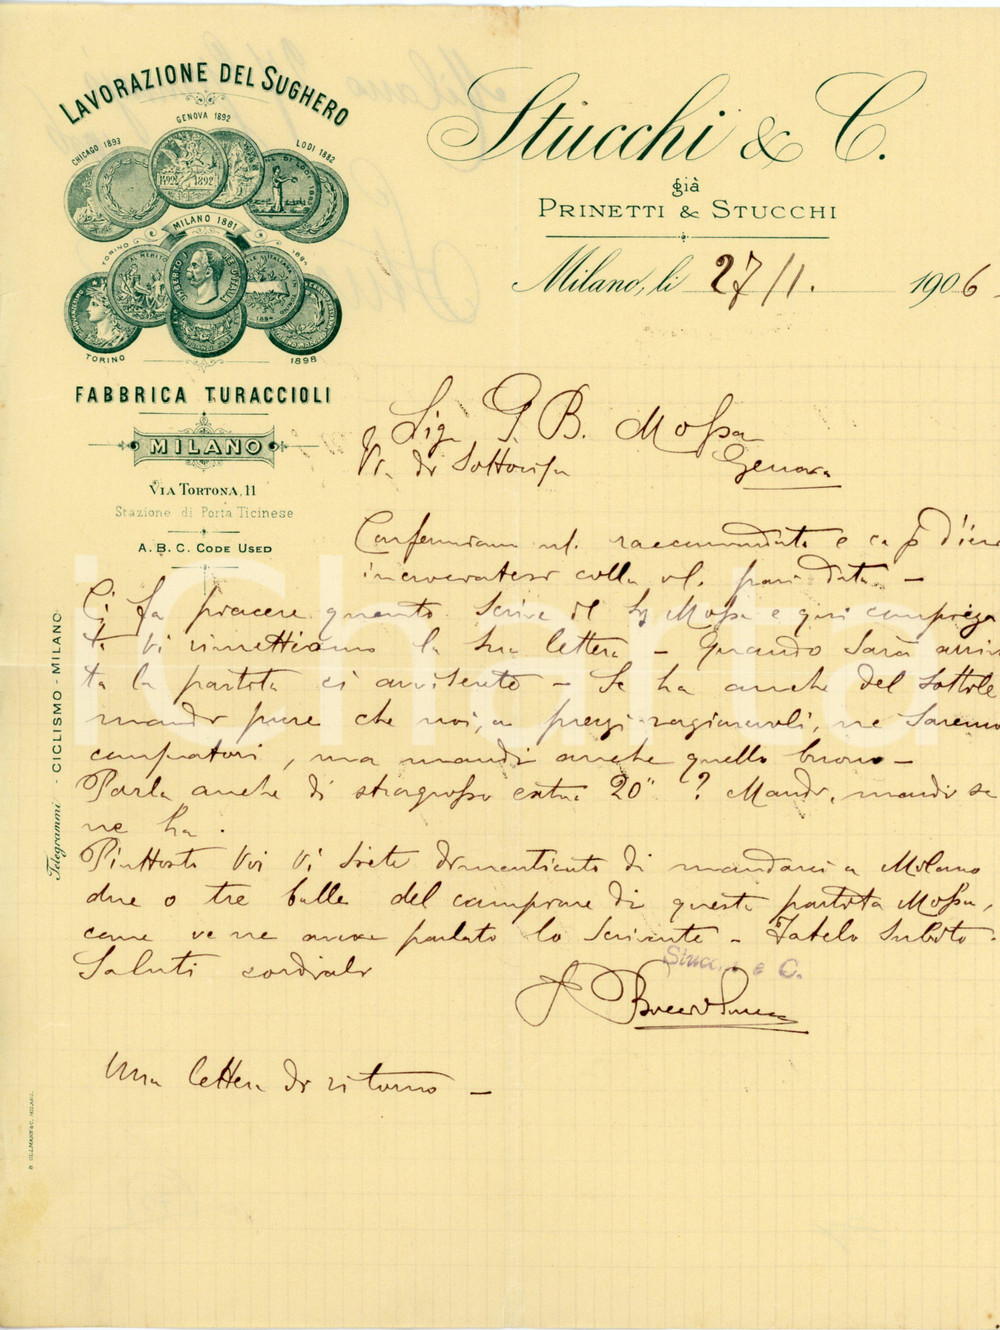 LAVORAZIONE DEL SUGHERO
GENOVA 1892
CHICAGO 1893
LODI 1882
1492 1892
MILANO 1881
TORINO
AL MERITO
UMBERTO I RE D'ITALIA
1884
TORINO
1898
FABBRICA TURACCIOLI
MILANO
VIA TORTONA, 11
Stazione di Porta Ticinese
A.B.C. CODE USED
Telegrammi - CICLISMO - MILANO
Stucchi & C.
già
PRINETTI & STUCCHI
Milano, li 27/1. 1906
Sig G. B. Mossa
Genova
Confermiamo ns. raccomandata e
incrociatesi colla vs. pari data -
Ci fa piacere quanto scrive il Sig Mossa e qui compiega
ta Vi rimettiamo la sua lettera - Quando sarà arriva
ta la partita ci avviserete - Se ha anche del sottile
mandi pure che noi, a prezzi ragionevoli, ne saremo
compratori, ma mandi anche quello buono -
Parla anche di stragrosso extra 20''' ? Mandi, mandi se
ne ha.
Piuttosto Voi Vi siete dimenticato di mandarci a Milano
due o tre balle del campione di questa partita Mossa,
come ve ne aveva parlato lo scrivente - Fatelo subito.
Saluti cordiali
Stucchi e C.
Una lettera di ritorno -